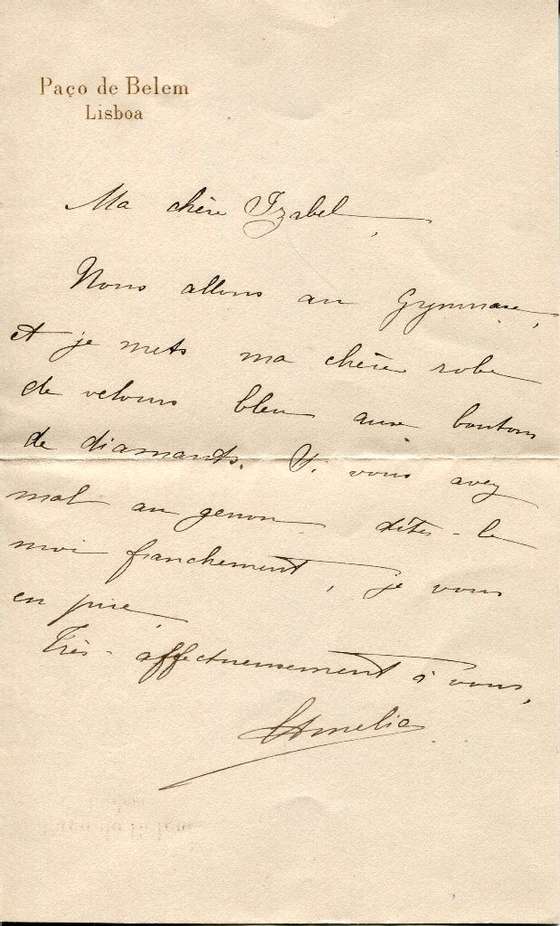 Paço de Belem
Lisboa
Ma chère Izabel,
Nous allons au Gymnase,
et je mets ma chère robe
de velours bleu aux boutons
de diamants. Si vous avez
mal au genou dites-le
moi franchement, je vous
en prie,
Très-affectueusement à vous,
Amelia